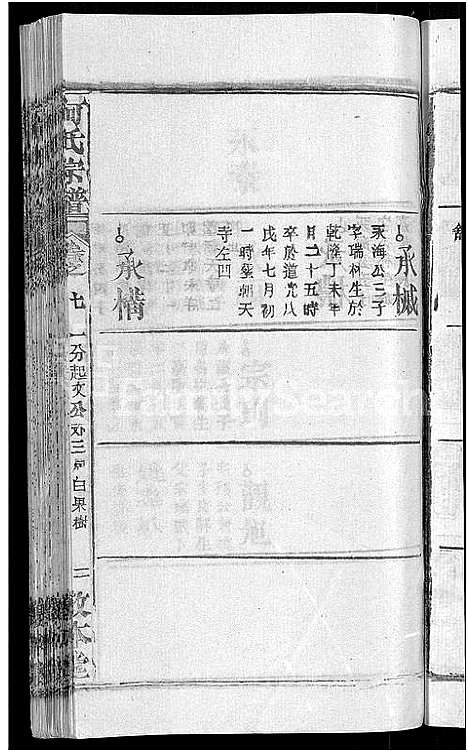 承棫
永海公三子
字瑞林生於
乾隆丁未年
月二十五時
卒於道光八
戊年七月初
一時葬朝天
寺左凹
承構
何氏宗譜
卷之七
一分起文公
三房白果樹
二
敦本堂